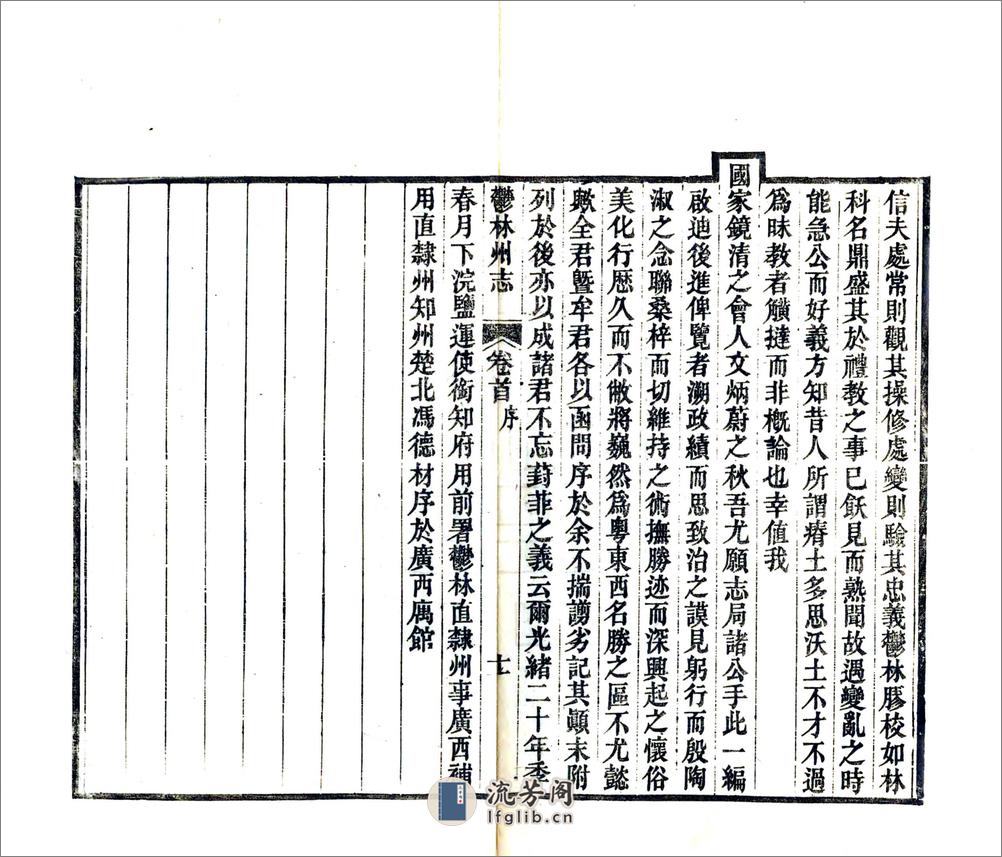 信夫處常則觀其操修處變則驗其忠義鬱林膠校如林
科名鼎盛其於禮教之事已飫見而熟聞故遇變亂之時
能急公而好義方知昔人所謂瘠土多思沃土不才不過
爲昧教者觵撻而非概論也幸值我
國家鏡清之會人文炳蔚之秋吾尤願志局諸公手此一編
啟迪後進俾覽者溯政績而思致治之謨見躬行而殷陶
淑之念聯桑梓而切維持之術撫勝迹而深興起之懷俗
美化行歷久而不敝將巍然爲粵東西名勝之區不尤懿
歟全君暨牟君各以函問序於余不揣譾劣記其顛末附
列於後亦以成諸君不忘葑菲之義云爾光緒二十年季
鬱林州志 卷首 序 十
春月下浣鹽運使銜知府用前署鬱林直隸州事廣西補
用直隸州知州楚北馮德材序於廣西寓館
流芳阁
lfglib.cn